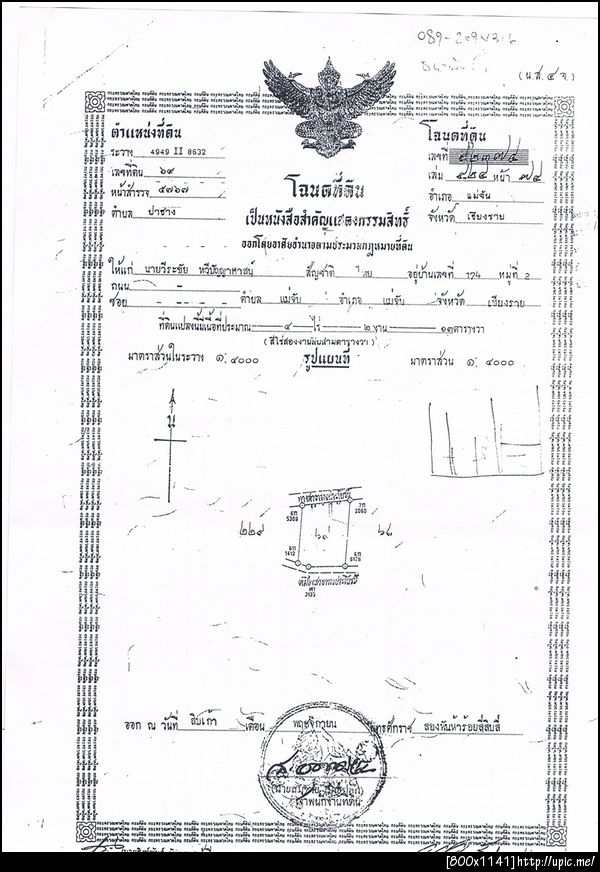 (น.ส.๔ จ.)
ตำแหน่งที่ดิน
ระวาง 4949 II 8632
เลขที่ดิน ๖๙
หน้าสำรวจ ๕๗๖๗
ตำบล ป่าซาง
โฉนดที่ดิน
เลขที่
เล่ม ๕๒๔ หน้า ๗๔
อำเภอ แม่จัน
จังหวัด เชียงราย
โฉนดที่ดิน
เป็นหนังสือสำคัญแสดงกรรมสิทธิ์
ออกโดยอาศัยอำนาจตามประมวลกฎหมายที่ดิน
ให้แก่ นายวีระชัย ทวีปัญญาศาสน์ สัญชาติ ไทย อยู่บ้านเลขที่ 174 หมู่ที่ 2
ถนน
ซอย ตำบล แม่จัน อำเภอ แม่จัน จังหวัด เชียงราย
ที่ดินแปลงนี้มีเนื้อที่ประมาณ ๔ ไร่ ๒ งาน ๑๓ ตารางวา
(สี่ไร่สองงานสิบสามตารางวา)
มาตราส่วนในระวาง ๑: ๔๐๐๐ รูปแผนที่ มาตราส่วน ๑: ๔๐๐๐
น
ทางสาธารณประโยชน์
6ก 5369
7ก 2060
๒๒๙ ๖๙ ๖๘
6ก 1412
6ก 6176
3133
ออก ณ วันที่ สิบเก้า เดือน พฤศจิกายน พุทธศักราช สองพันห้าร้อยสี่สิบสี่
เจ้าพนักงานที่ดิน
[800x1141]http://upic.me/